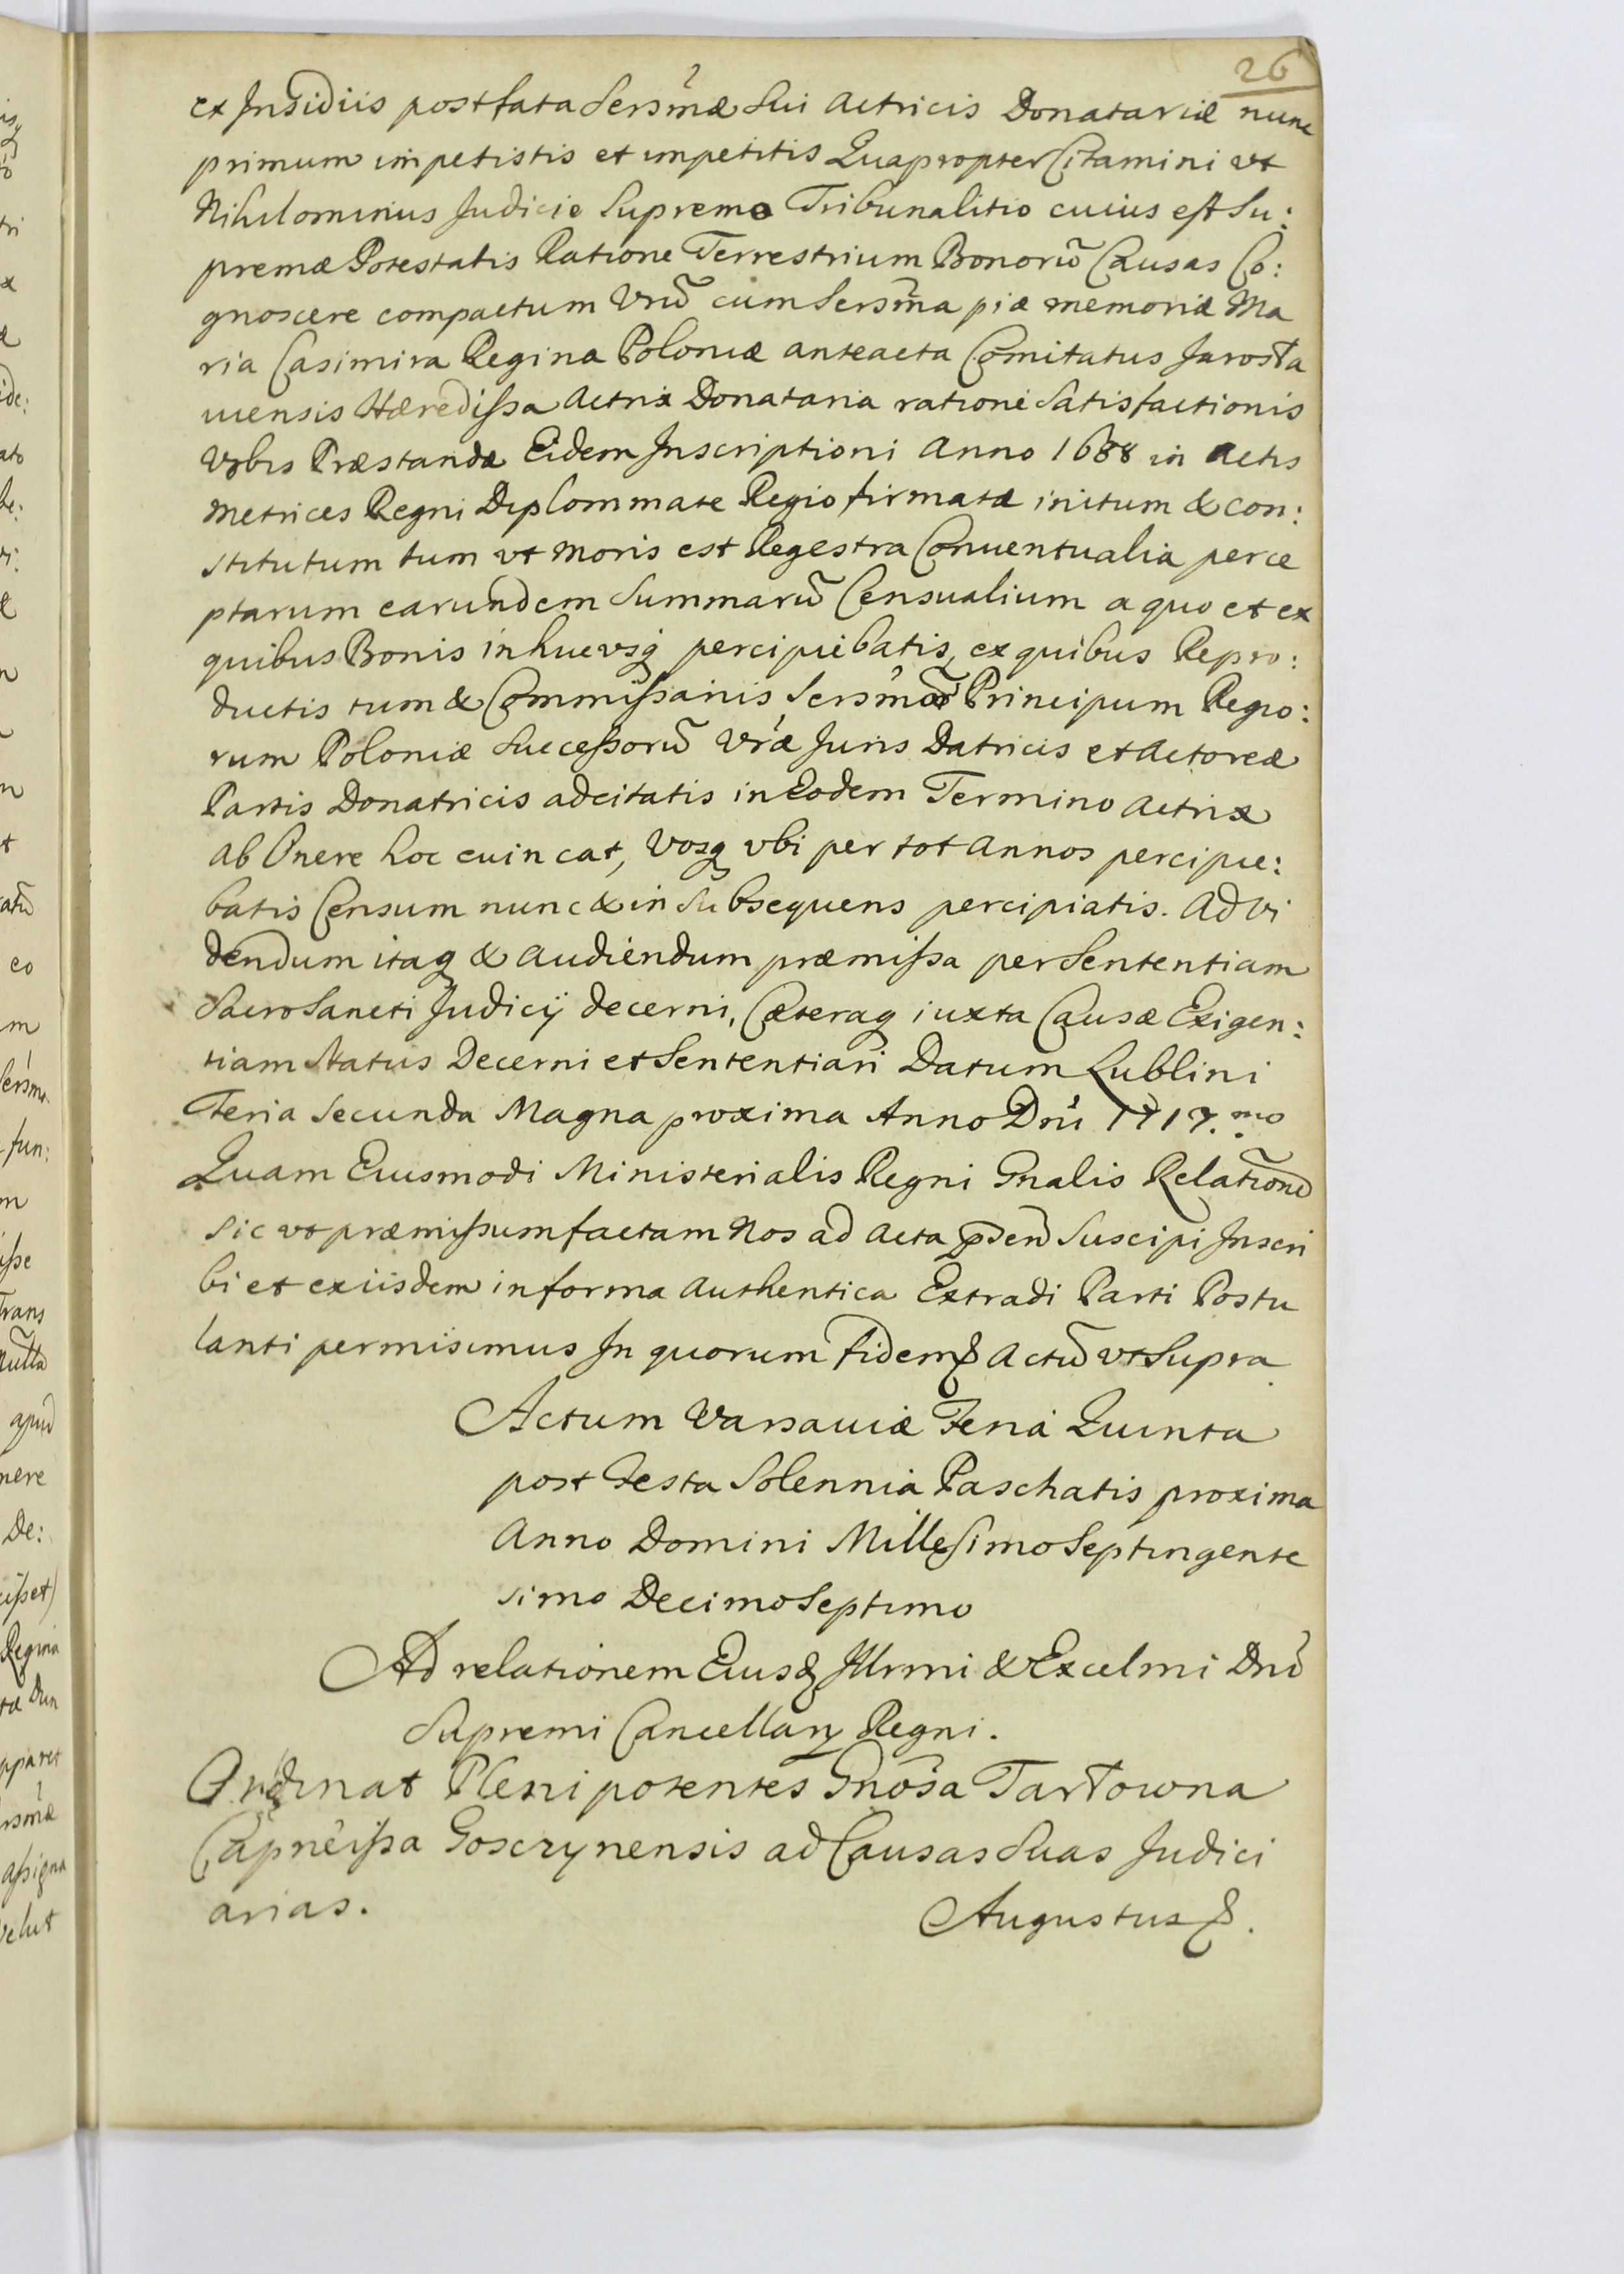 26
ex Insidiis post fata Sersmæ Sui Actricis Donatariæ nunc
primum impetistis et impetitis Quapropter Citamini vt
Nihilominus Judicio Supremo Tribunalitio cuius est Su:
premæ Potestatis Ratione Terrestrium Bonorū Causas Co:
gnoscere compactum Vrū cum Sersma piæ memoriæ Ma
ria Casimira Regina Poloniæ anteacta Comitatus Jarosła
uiensis Hæredissa Actrix Donataria ratione Satisfactionis
Vobis Præstandæ Eidem Inscriptioni Anno 1688 in Actis
Metrices Regni Diplommate Regio firmatæ initum & con:
stitutum tum vt moris est Regestra Conuentualia perce
ptarum earundem Summarū Censualium a quo et ex
quibus Bonis in hucvsq percipiebatis, ex quibus Repro:
ductis tum & Commissariis Sersmor Principum Regio:
rum Poloniæ Successorū Vræ Juris Datricis et Actoreæ
Partis Donatricis adcitatis in Eodem Termino Actrix
ab Onere hoc euincat, Vosq vbi per tot Annos percipie:
batis Censum nunc & in Subsequens percipiatis. Ad Vi
dendum itaq & Audiendum præmissa per Sententiam
Sacro Sancti Judicij decerni, Cæteraq iuxta Causæ Exigen:
tiam Status Decerni et Sententiari Datum Lublini
Feria Secunda Magna proxima Anno Dni 1717.mo
Quam Eiusmodi Ministerialis Regni Gnalis Relationē
sic vt præmissum factam Nos ad Acta pnsen Suscipi Inscri
bi et ex iisdem in forma Authentica Extradi Parti Postu
lanti permisimus In quorum Fidem & Actū vt Supra
Actum Varsauiæ Feria Quinta
post Festa Solennia Paschatis proxima
Anno Domini Millesimo Septingente
simo Decimo Septimo
Ad relationem Eiusd Illrmi & Excelmi Dni
Supremi Cancellarij Regni.
Ordinat Plenipotentes Gnosa Tarłowna
Capneissa Goscrynensis ad Causas Suas Judici
arias.
Augustus &.